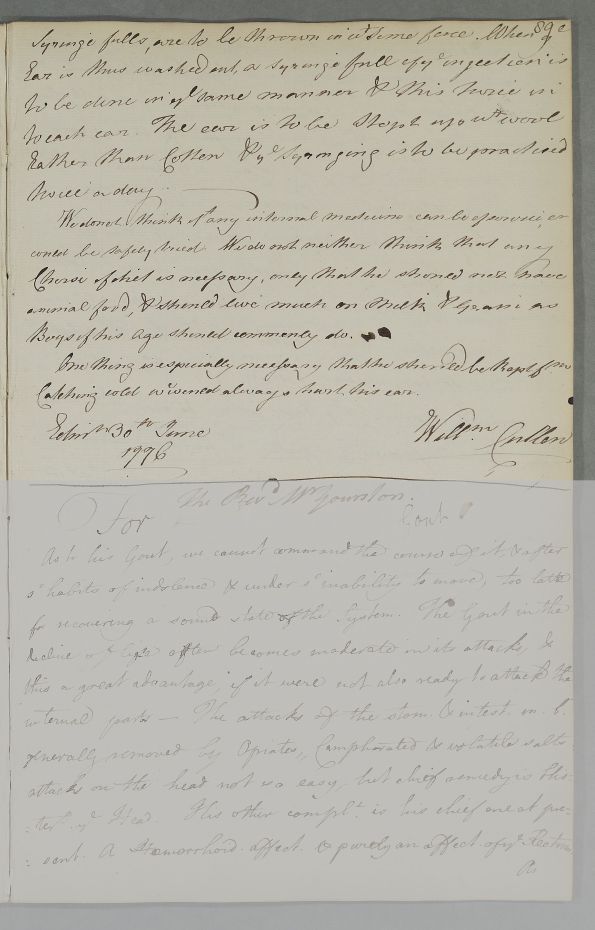 Syringe fulls, are to be thrown in wt. some force. When ye
Ear is thus washed out, a syringe full of ye injection is
to be done in ye same manner & this twice in
to each ear. The ear is to be stopt up wt wool
Rather than Cotton & ye Syringing is to be practised
twice a day.
We do not think yt any internal medicine can be of service, or
could be safely tried. We do not neither think that any
Choise of diet is necessary, only that he should not have
animal food, & should live much on Milk & Grain as
Boys of his age should commonly do.
One thing is especially necessary that he should be kept from
Catching cold wc would always hurt his ear.
Edinr 30th June
1776
Willm Cullen
89
For The Revd Mr Gourston.
Gout
As to his Gout, we cannot command the course of it, & after
s' habits of indolence & under s' inability to move, too late
for recovering a sound state of the System. The Gout in the
decline of life often becomes moderate in its attacks, &
this a great advantage, if it were not also ready to attack the
internal parts — The attacks of the stom. & intest. m. b.
generally removed by Opiates, Camphorated & volatile salts
attacks on the head not so easy, but chief remedy is blis-
:ter. ye Head. His other complt. is his chief one at pre-
: sent. A Hemorrhoid. affect. & purely an affect. of ye Rectum
As